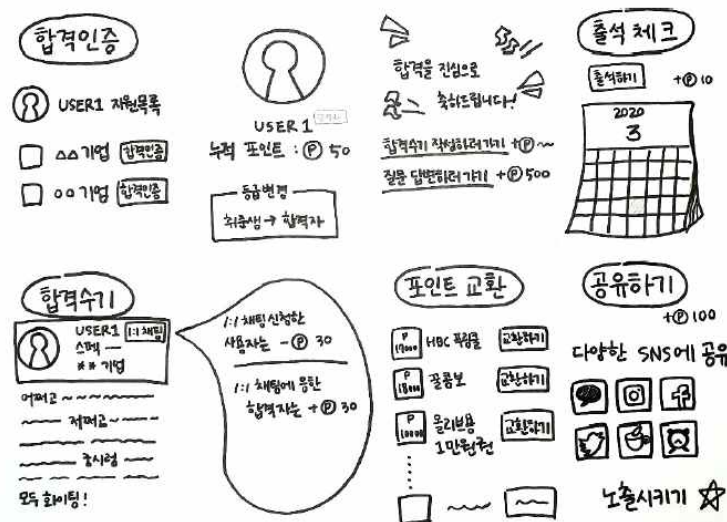 합격인증
USER1 지원목록
△△기업 합격인증
○○기업 합격인증
USER1
누적 포인트 : Ⓟ 50
등급변경
취준생 → 합격자
합격을 진심으로
축하드립니다!
합격수기 작성하러가기 +Ⓟ~
질문 답변하러가기 +Ⓟ500
출석 체크
출석하기 +Ⓟ10
2020
3
합격수기
USER1 1:1 채팅
스펙 —
** 기업
어쩌고~~~~
~~ 저쩌고~~~
~~~ 중시렁
모두 화이팅!
1:1 채팅신청한
사용자는 -Ⓟ 30
1:1 채팅에 응한
합격자는 +Ⓟ 30
포인트 교환
P HBC 교환하기
P 꿀콤보 교환하기
P 10000 올리브용 교환하기
1만원권
공유하기
+Ⓟ100
다양한 SNS에 공유
노출시키기 ☆